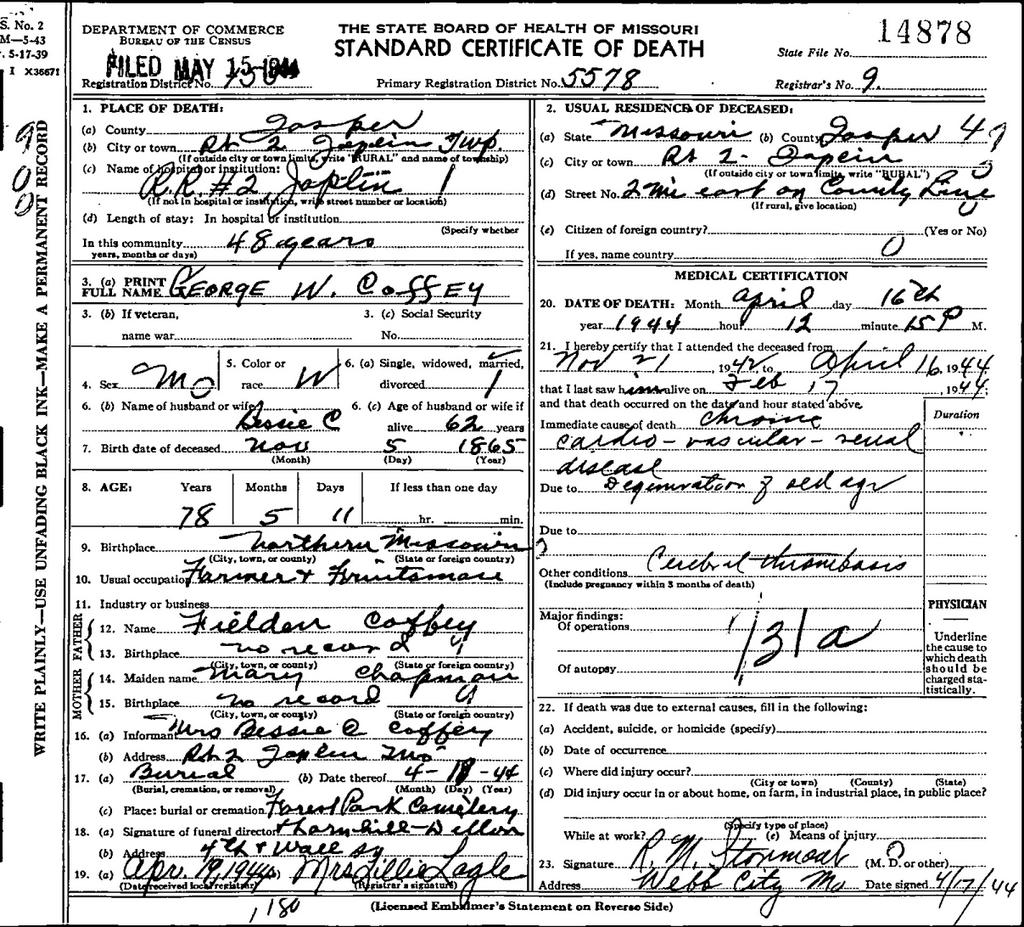 S. No. 2
M—5-43
. 5-17-39
I X36671
WRITE PLAINLY—USE UNFADING BLACK INK—MAKE A PERMANENT RECORD
DEPARTMENT OF COMMERCE
BUREAU OF THE CENSUS
FILED MAY 15 1944
Registration District No.
THE STATE BOARD OF HEALTH OF MISSOURI
STANDARD CERTIFICATE OF DEATH
Primary Registration District No. 5578
14878
State File No.
Registrar's No. 9.
1. PLACE OF DEATH:
(a) County Jasper
(b) City or town Rt 2 Joplin Twp
(If outside city or town limits, write "RURAL" and name of township)
(c) Name of hospital or institution:
R.R. #2, Joplin 1
(If not in hospital or institution, write street number or location)
(d) Length of stay: In hospital or institution
(Specify whether
In this community 48 years
years, months or days)
3. (a) PRINT FULL NAME GEORGE W. COFFEY
3. (b) If veteran, name war
3. (c) Social Security No.
4. Sex M
5. Color or race W
6. (a) Single, widowed, married, divorced 1
6. (b) Name of husband or wife Bessie C
6. (c) Age of husband or wife if alive 62 years
7. Birth date of deceased Nov 5 1865
(Month) (Day) (Year)
8. AGE: Years Months Days If less than one day
78 5 11 hr. min.
9. Birthplace Northern Missouri
(City, town, or county) (State or foreign country)
10. Usual occupation Farmer &
11. Industry or business
FATHER
12. Name Fielden Coffey
13. Birthplace no record
(City, town, or county) (State or foreign country)
MOTHER
14. Maiden name Mary Chapman
15. Birthplace no record
(City, town, or county) (State or foreign country)
16. (a) Informant Mrs Bessie C Coffey
(b) Address Rt 2 Joplin Mo
17. (a) Burial (b) Date thereof 4-18-44
(Burial, cremation, or removal) (Month) (Day) (Year)
(c) Place: burial or cremation Forest Park Cemetery
18. (a) Signature of funeral director Thornhill-Dillon
(b) Address 4th & Wall
19. (a) Apr. 19, 1944 Mrs Lillie Lagle
(Date received local registrar) (Registrar's signature)
2. USUAL RESIDENCE OF DECEASED:
(a) State Missouri (b) County Jasper
(c) City or town Rt 2 - Joplin
(If outside city or town limits, write "RURAL")
(d) Street No. 2 mi east on County Line
(If rural, give location)
(e) Citizen of foreign country? (Yes or No)
If yes, name country 0
MEDICAL CERTIFICATION
20. DATE OF DEATH: Month April day 16th
year 1944 hour 12 minute 15 P M.
21. I hereby certify that I attended the deceased from
Nov 21 1942 to April 16, 1944
that I last saw him alive on Feb 17, 1944;
and that death occurred on the date and hour stated above.
Duration
Immediate cause of death Chronic
cardio-vascular-renal
disease
Due to Degeneration of old age
Due to
Other conditions Cerebral thrombosis
(Include pregnancy within 3 months of death)
Major findings:
Of operations
Of autopsy
131a
PHYSICIAN
Underline the cause to which death should be charged statistically.
22. If death was due to external causes, fill in the following:
(a) Accident, suicide, or homicide (specify)
(b) Date of occurrence
(c) Where did injury occur?
(City or town) (County) (State)
(d) Did injury occur in or about home, on farm, in industrial place, in public place?
(Specify type of place)
While at work? (e) Means of injury
23. Signature R. M. Stormont (M. D. or other)
Address Webb City Mo Date signed 4/17/44
1,180
(Licensed Embalmer's Statement on Reverse Side)